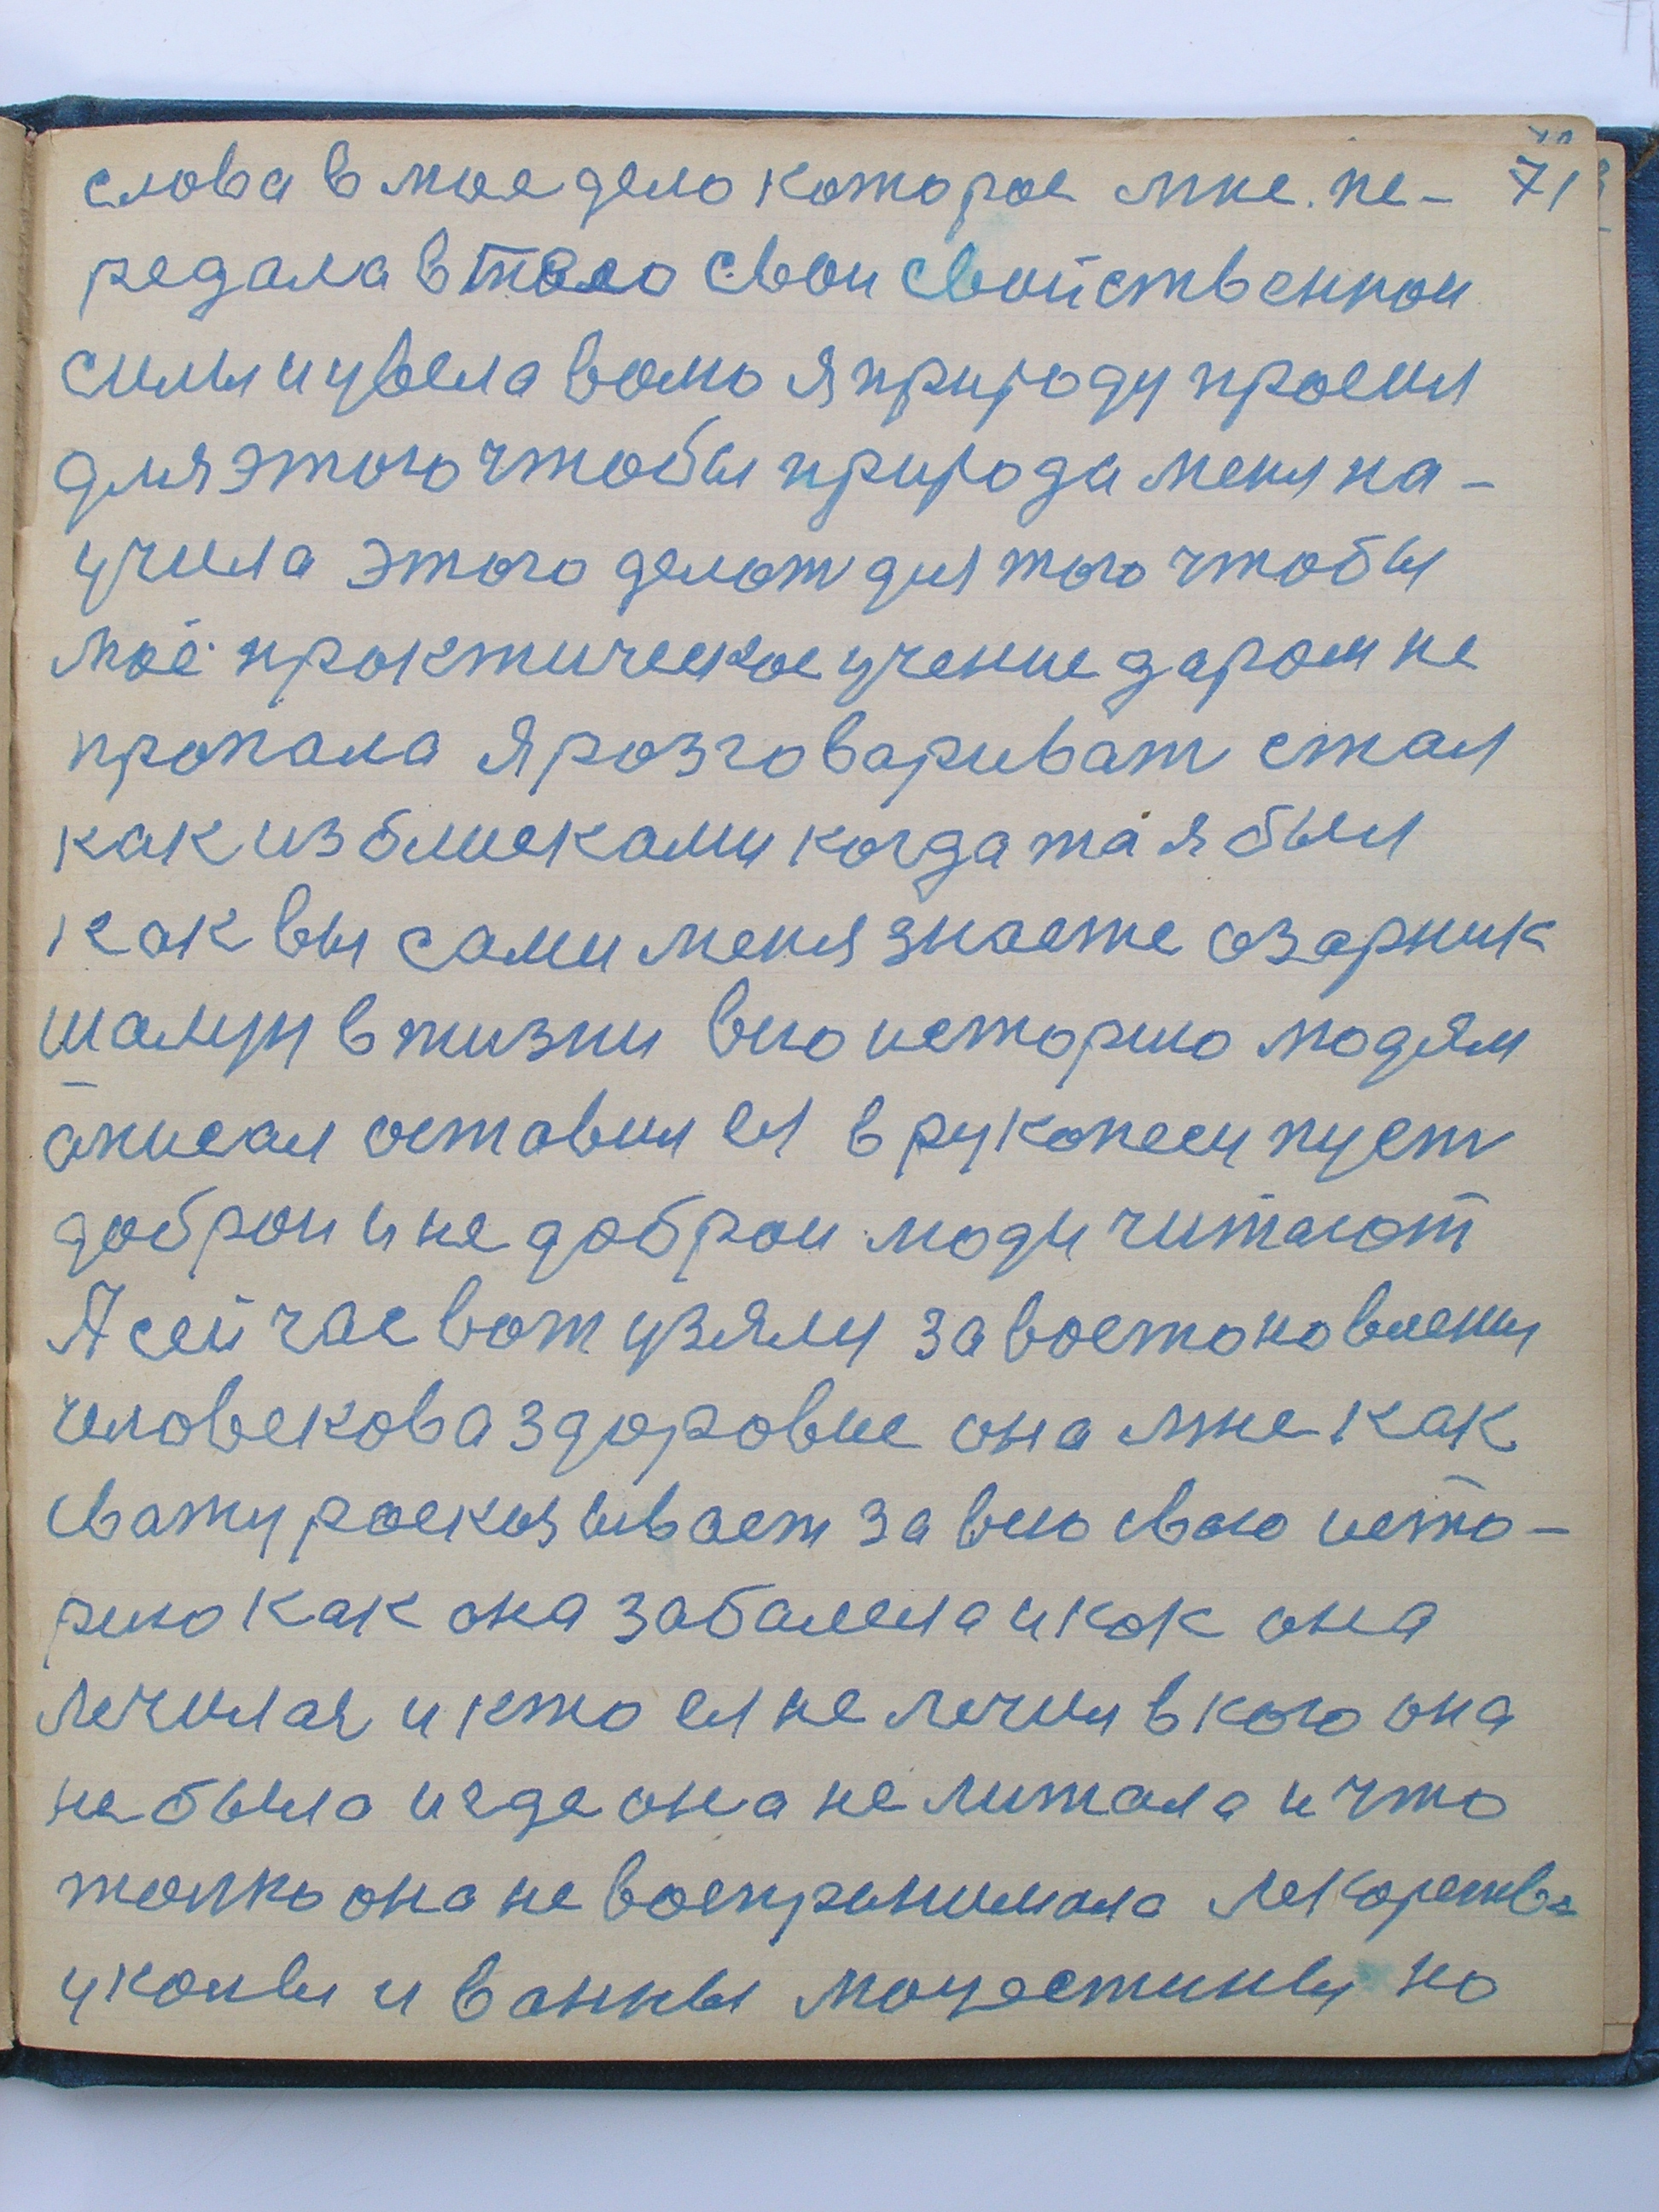 слова в мое дело которое мне. пе- 71
редала в тело свои свойственнои
силы и увела волю я природу просил
для этого чтобы природа меня на-
учила этого делат для того чтобы
моё практическое учение даром не
пропала я розговариват стал
как из блиеками когда та я был
как вы сами меня знаете озарник
шалун в жизни всю историю людям
описал оставил ея в рукопеси пуст
доброи и не доброи люди читают
Я сейчас вот узялся за востоновления
человекова здоровие она мне как
свату росказывает за всю свою исто-
рию как она заболела и как она
лечилас и кто ея не лечил в кого она
не была и где она не литала и что
толко она не воспринимала лекарства
уколы и ванны мацестины но